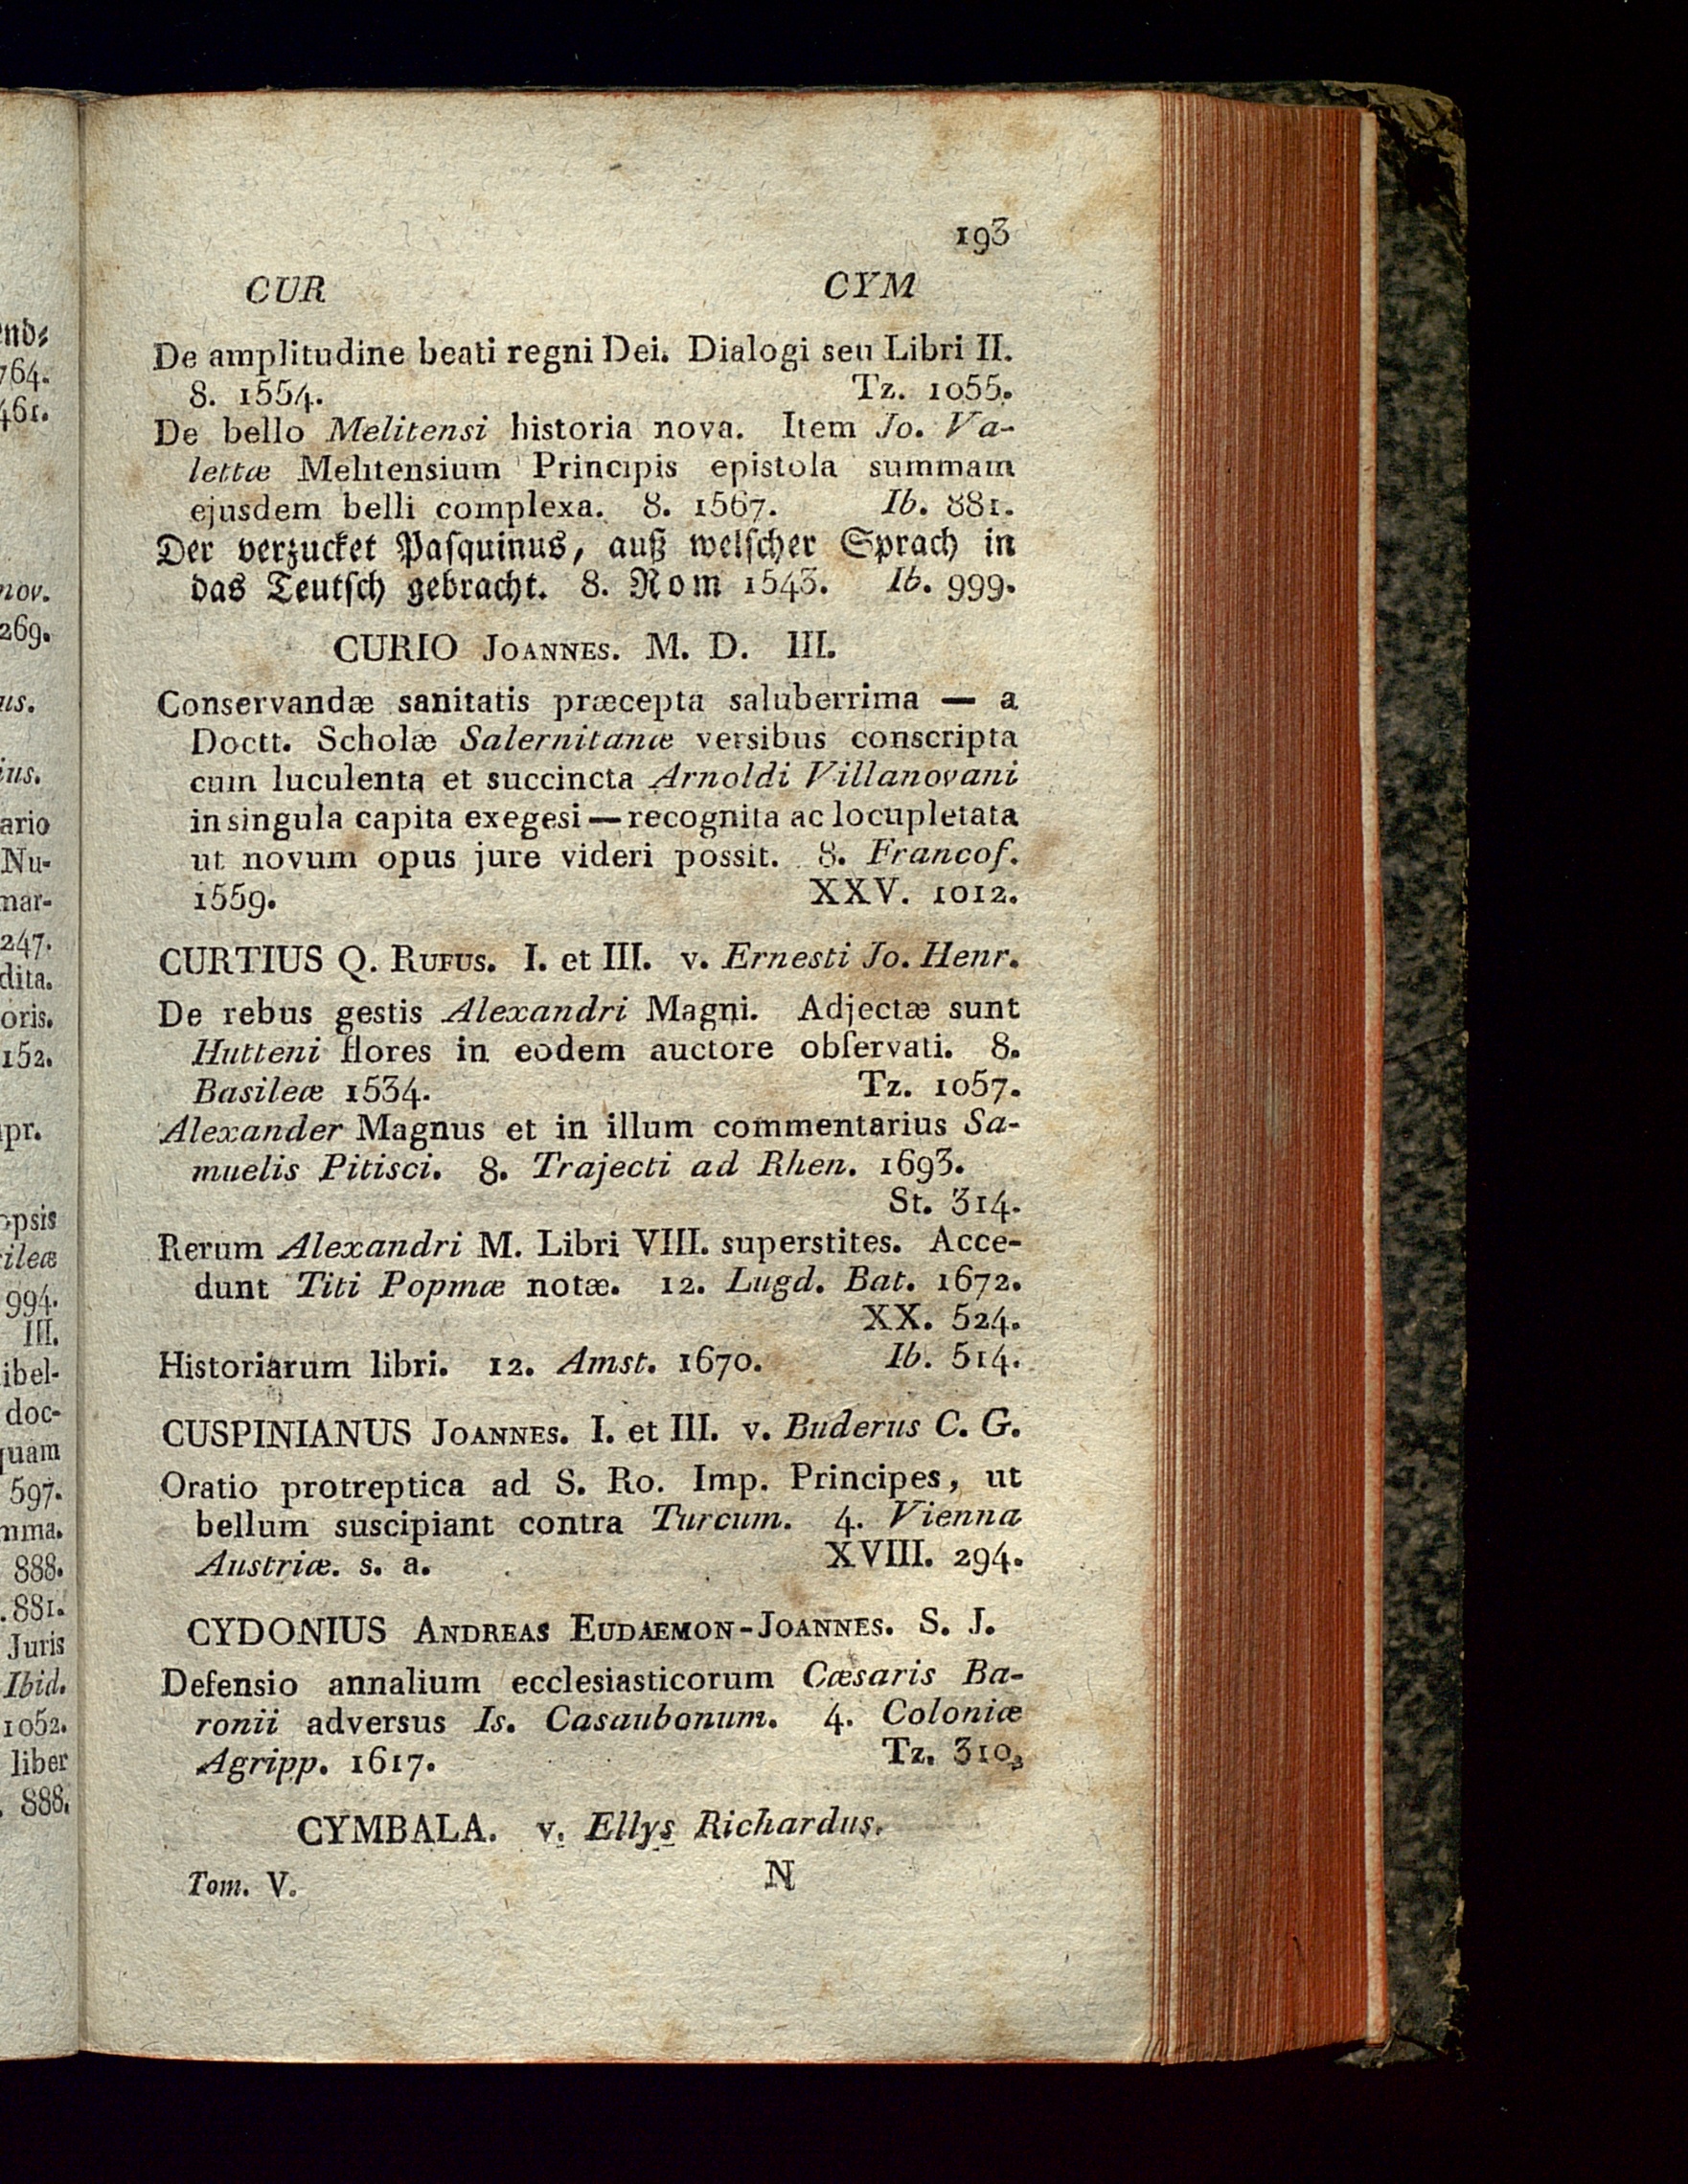 end⸗
764.
461.
nov.
269.
us.
ius.
ario
Nu-
mar-
247.
dita.
oris.
152.
pr.
opsis
ileæ
994.
III.
ibel-
doc-
quam
597.
mma.
888.
.881.
Juris
Ibid.
1052.
liber
. 888.
193
CUR CYM
De amplitudine beati regni Dei. Dialogi seu Libri II.
8. 1554. Tz. 1055.
De bello Melitensi historia nova. Item Jo. Va-
lettæ Melitensium Principis epistola summam
ejusdem belli complexa. 8. 1567. Ib. 881.
Der verzucket Pasquinus, auß welscher Sprach in
das Teutsch gebracht. 8. Rom 1543. Ib. 999.
CURIO JOANNES. M. D. III.
Conservandæ sanitatis præcepta saluberrima — a
Doctt. Scholæ Salernitanæ versibus conscripta
cum luculenta et succincta Arnoldi Villanovani
in singula capita exegesi — recognita ac locupletata
ut novum opus jure videri possit. 8. Francof.
1559. XXV. 1012.
CURTIUS Q. RUFUS. I. et III. v. Ernesti Jo. Henr.
De rebus gestis Alexandri Magni. Adjectæ sunt
Hutteni flores in eodem auctore obſervati. 8.
Basileæ 1534. Tz. 1057.
Alexander Magnus et in illum commentarius Sa-
muelis Pitisci. 8. Trajecti ad Rhen. 1693.
St. 314.
Rerum Alexandri M. Libri VIII. superstites. Acce-
dunt Titi Popmæ notæ. 12. Lugd. Bat. 1672.
XX. 524.
Historiarum libri. 12. Amst. 1670. Ib. 514.
CUSPINIANUS JOANNES. I. et III. v. Buderus C. G.
Oratio protreptica ad S. Ro. Imp. Principes, ut
bellum suscipiant contra Turcum. 4. Vienna
Austriæ. s. a. XVIII. 294.
CYDONIUS ANDREAS EUDAEMON-JOANNES. S. J.
Defensio annalium ecclesiasticorum Cæsaris Ba-
ronii adversus Is. Casaubonum. 4. Coloniæ
Agripp. 1617. Tz. 310.
CYMBALA. v. Ellys Richardus.
Tom. V. N